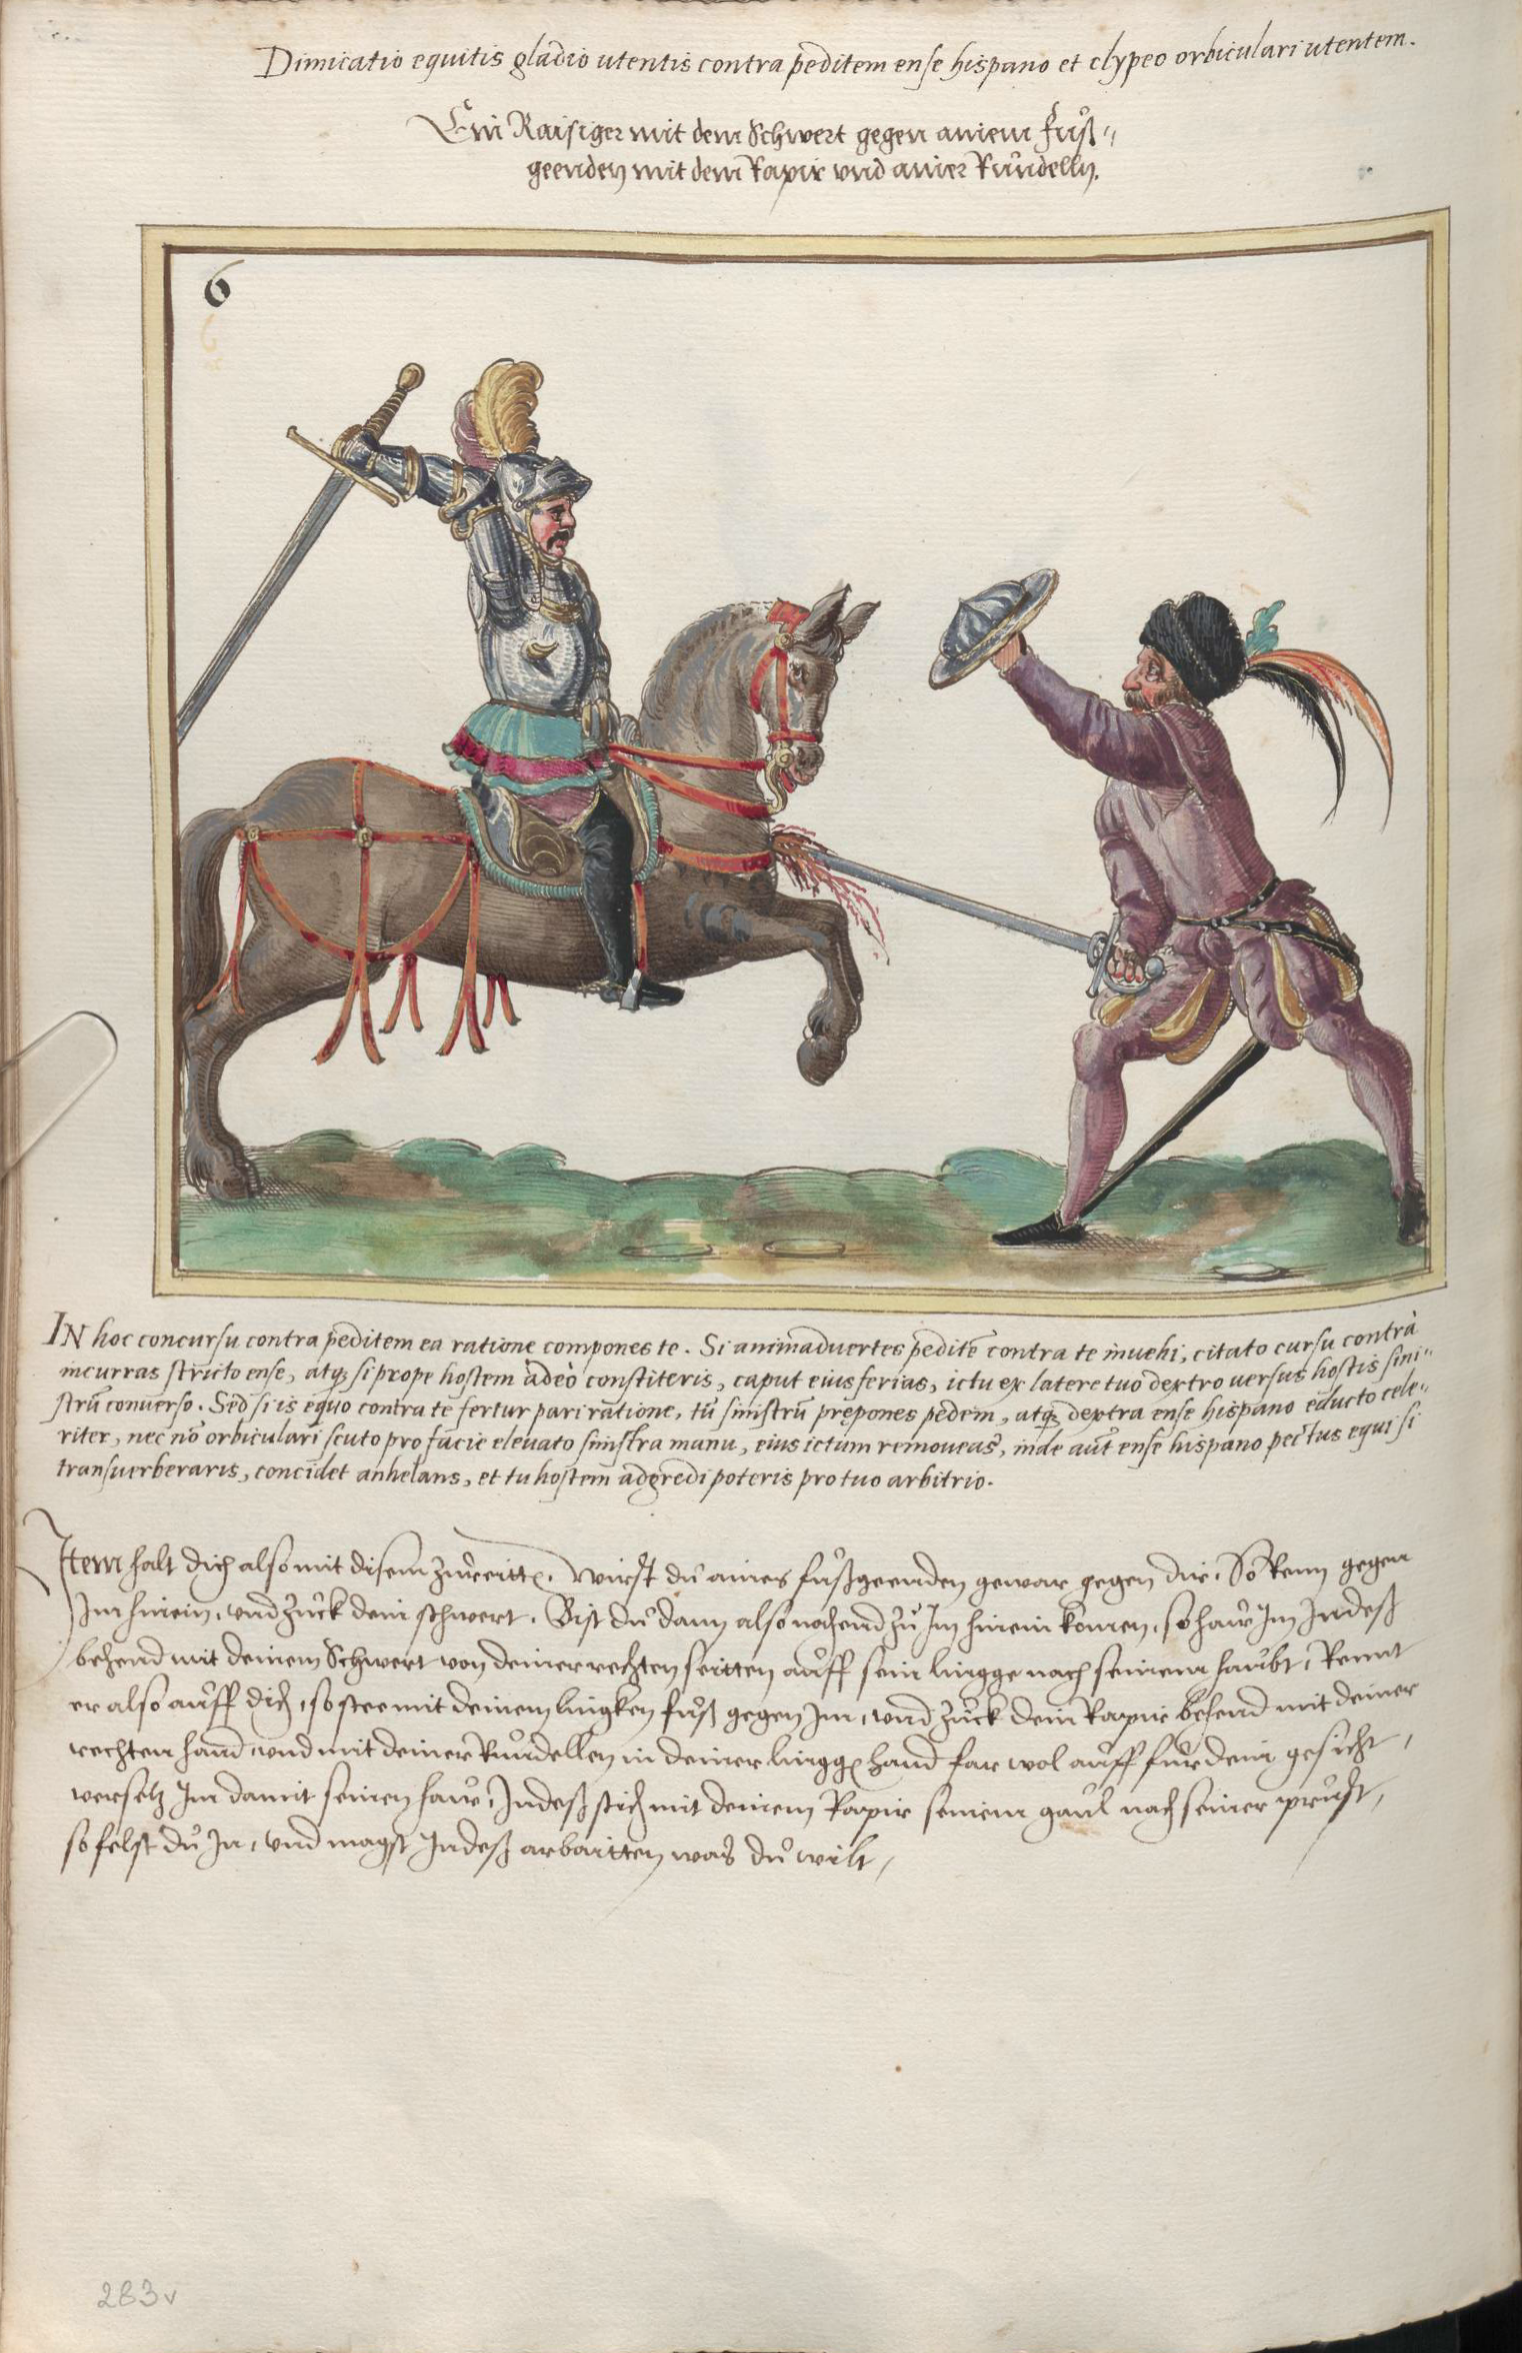 Dimicatio equitis gladio utentis contra peditem ense hispano et clypeo orbiculari utentem.
Ein Raisiger mit dem Schwert gegen ainem fůß„
geenden mit dem Rapir vnd ainer Rundelln.
6
IN hoc concursu contra peditem ea ratione compones te. Si animaduertes peditē contra te inuehi, citato cursu contrà
incurras stricto ense, atq; si prope hostem adeò constiteris, caput eius ferias, ictu ex latere tuo dextro uersus hostis sini„
strū conuerso. Sed si is equo contra te fertur pari ratione, tū sinistrū prepones pedem, atq; dextra ense hispano educto cele„
riter, nec nō orbiculari scuto pro facie eleuato sinistra manu, eius ictum remoueas, inde aūt ense hispano pectus equi si
transuerberaris, concidet anhelans, et tu hostem adgredi poteris pro tuo arbitrio.
Item halt dich also mit disem zůreittn. Wirst dů aines fůßgeenden gewar gegen dir, So Renn gegen
Im hinein, vnd zůck dein schwert. Bist dů dann also nochend zů Im hinein komen, so haw Im Indeß
behend mit deinem Schwert von deiner rechten seitten aůff sein lingge nach seinem haůbt, Rennt
er also aůff dich, so stee mit deinem lingken fůß gegen Im, vnd zůck dein Rapir behend mit deiner
rechten hand vnd mit deiner Růndellen in deiner linggn hand far wol aůff für dein gesicht,
versetz Im damit seinen haw, Indeß stich mit deinem Rapir seinem gaůl nach seiner průst,
so felst dů In, vnd magst Indeß arbaitten was dů wilt,
283v